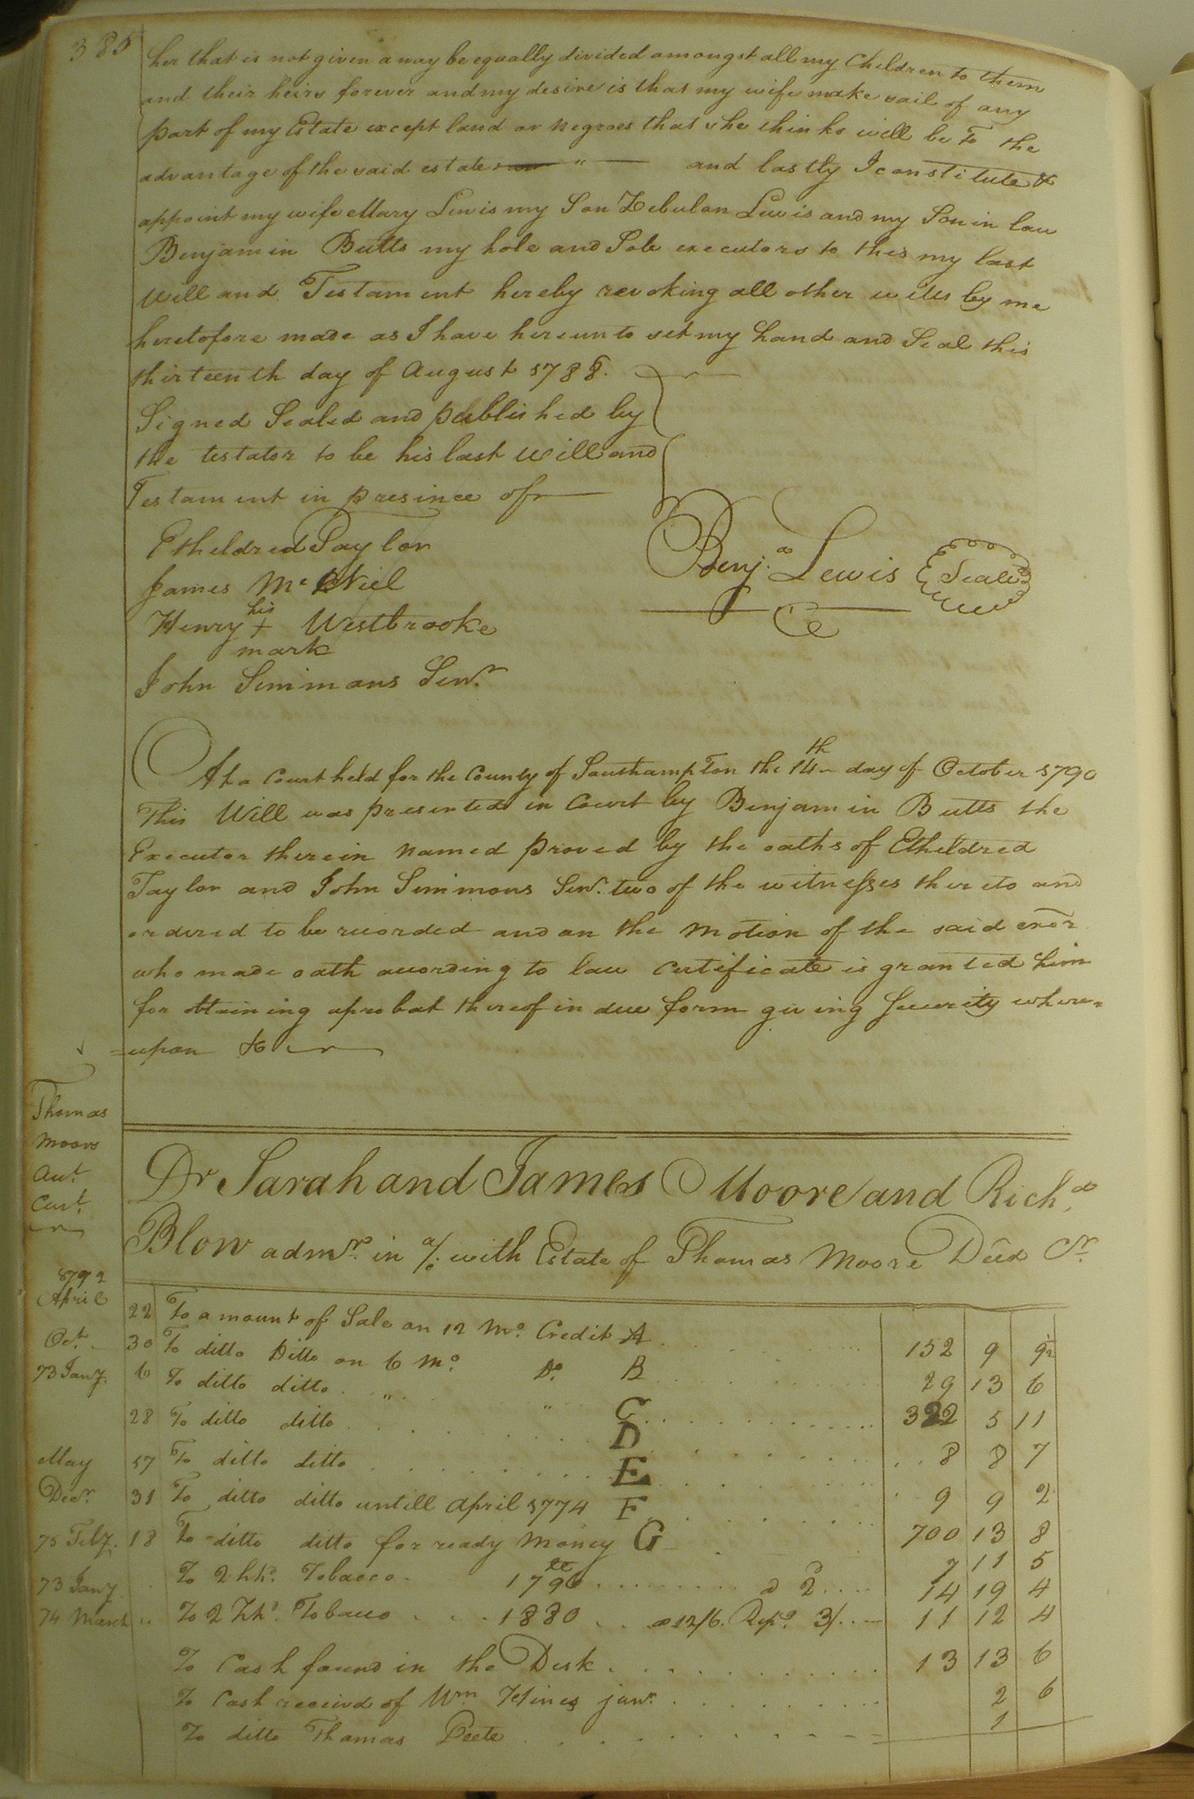 385
her that is not given away be equally divided amongst all my Children to them
and their heirs forever and my desire is that my wife make sail of any
part of my Estate except land or negroes that she thinks will be to the
advantage of the said estate " and lastly I constitute &
appoint my wife Mary Lewis my Son Zebulon Lewis and my Son in law
Benjamin Butts my hole and Sole executors to this my last
Will and Testament hereby revoking all other wills by me
heretofore made as I have hereunto set my hand and Seal this
thirteenth day of August 1788.
Signed Sealed and published by
the testator to be his last Will and
Testament in presince of
Etheldred Taylor
James McNiel
Benja. Lewis Seal
his
Henry + Westbrooke
mark
John Simmans Senr.
At a Court held for the County of Southampton the 14th day of October 1790
This Will was presented in Court by Benjamin Butts the
Executor therein named proved by the oaths of Etheldred
Taylor and John Simmons Senr. two of the witnesses thereto and
ordered to be recorded and on the motion of the said exor
who made oath according to law certificate is granted him
for obtaining aprobat thereof in due form giving Security where=
=upon &c
Thomas
Moors
Acct.
Curt.
Dr Sarah and James Moore and Richd.
Blow admrs. in a/c with Estate of Thomas Moore Decd Cr.
1792
April 22 To amount of Sale on 12 Mo. Credit A 152 9 9½
Oct. 30 To ditto Ditto on 6 Mo. Do. B 29 13 6
73 Jany. 6 To ditto ditto " " C 322 5 11
28 To ditto ditto D 8 8 7
May 17 To ditto ditto E 9 9 2
Decr. 31 To ditto ditto untill April 1774 F 700 13 8
75 Feby. 18 To ditto ditto for ready Money G 7 11 5
73 Jany To 2 hhs. Tobacco 1790 a 2 14 19 4
74 March To 2 hhs. Tobacco 1880 a 12/6. 3/. 11 12 4
To Cash found in the Desk 13 13 6
To Cash receivd of Wm Hines junr. 2 6
To ditto Thomas Peete 1